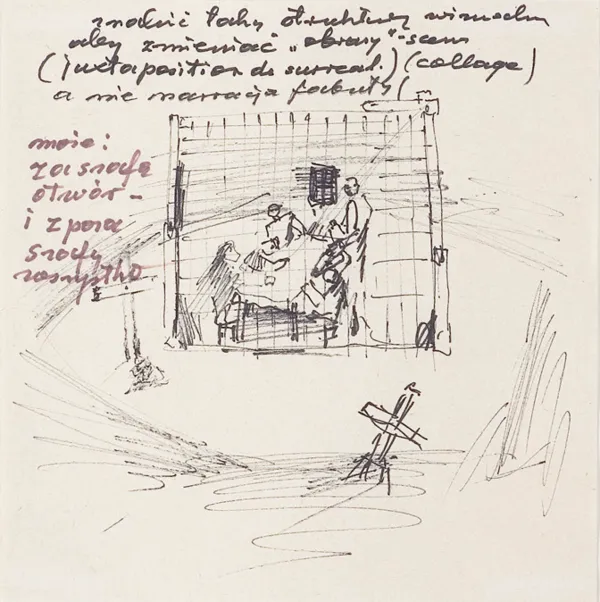 znaleźć taką strukturę wizualną
aby zmieniać „obrazy"-scen
(juxtaposition de surreal.) (collage)
a nie narracja fabuły!
może:
za szafą
otwór –
i z poza
szafy
wszystko.